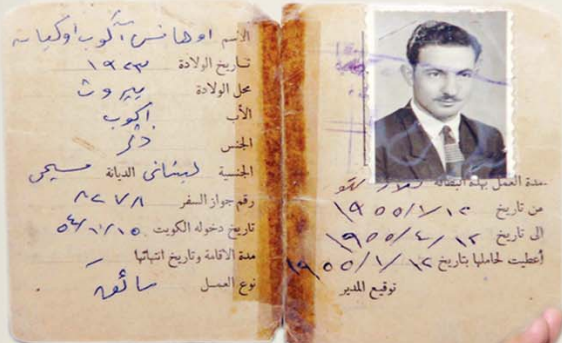 الاسم اوهانس آكوب اوكيان
تاريخ الولادة ١٩٢٣
محل الولادة بيروت
الأب اكوب
الجنس ذكر
الجنسية لبناني الديانة مسيحي
رقم جواز السفر ٨٢٧٨
تاريخ دخوله الكويت ٥٤/١/١٥
مدة الاقامة وتاريخ انتهائها
نوع العمل سائق
مدة العمل بهذه البطاقة
من تاريخ ١٩٥٥/١/١٢
الى تاريخ ١٩٥٥/٤/١٢
أعطيت لحاملها بتاريخ ١٩٥٥/١/١٢
توقيع المدير